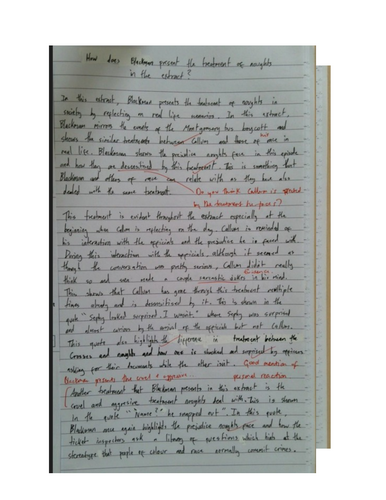 How does Blackman present the treatment of noughts
in the extract?
In this extract, Blackman presents the treatment of noughts in
society by reflecting on real life scenarios. In this extract,
Blackman mirrors the events of the Montgomery bus boycott and
shows the similar treatments between Callum and those of race in
real life. Blackman shows the prejudice noughts face in this episode
and how they are desensitised by this treatment. This is something that
Blackman and others of race can relate with as they have also
dealt with the same treatment. Do you think Callum is
by the treatment he faces?
This treatment is evident throughout the extract especially at the
beginning when Callum is reflecting on the day. Callum is reminded of
his interactions with the officials and the prejudice he is faced with.
During this interaction with the officials, although it seemed as
though the conversation was pretty serious, Callum didn't really
think so and even made a couple sarcastic in his mind.
This shows that Callum has gone through this treatment multiple
times already and is desensitised by it. This is shown in the
quote "Sephy looked surprised. I wasn't." where Sephy was surprised
and almost curious by the arrival of the officials but not Callum.
This quote also highlights the difference in treatment between the
Crosses and noughts and how one is shocked and surprised by
asking for their documents while the other isn't. Good mention of
personal reaction
Another treatment that Blackman presents in this extract is the
cruel and aggressive treatment noughts deal with. This is shown
in the quote "'Name?' he snapped out". In this quote,
Blackman once again highlights the prejudice noughts face and how the
ticket inspectors ask a of questions which hints at the
stereotype that people of colour and race normally commit crimes.